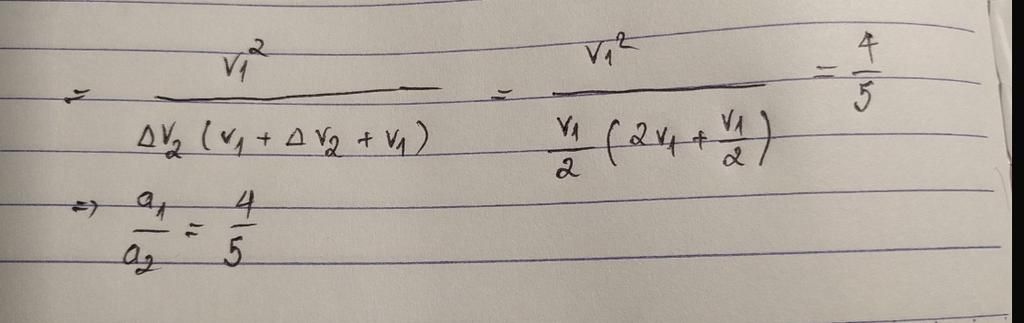 = v₁² / Δv₂ (v₁ + Δv₂ + v₁) = v₁² / (v₁/2 (2v₁ + v₁/2)) = 4/5
⇒ a₁/a₂ = 4/5